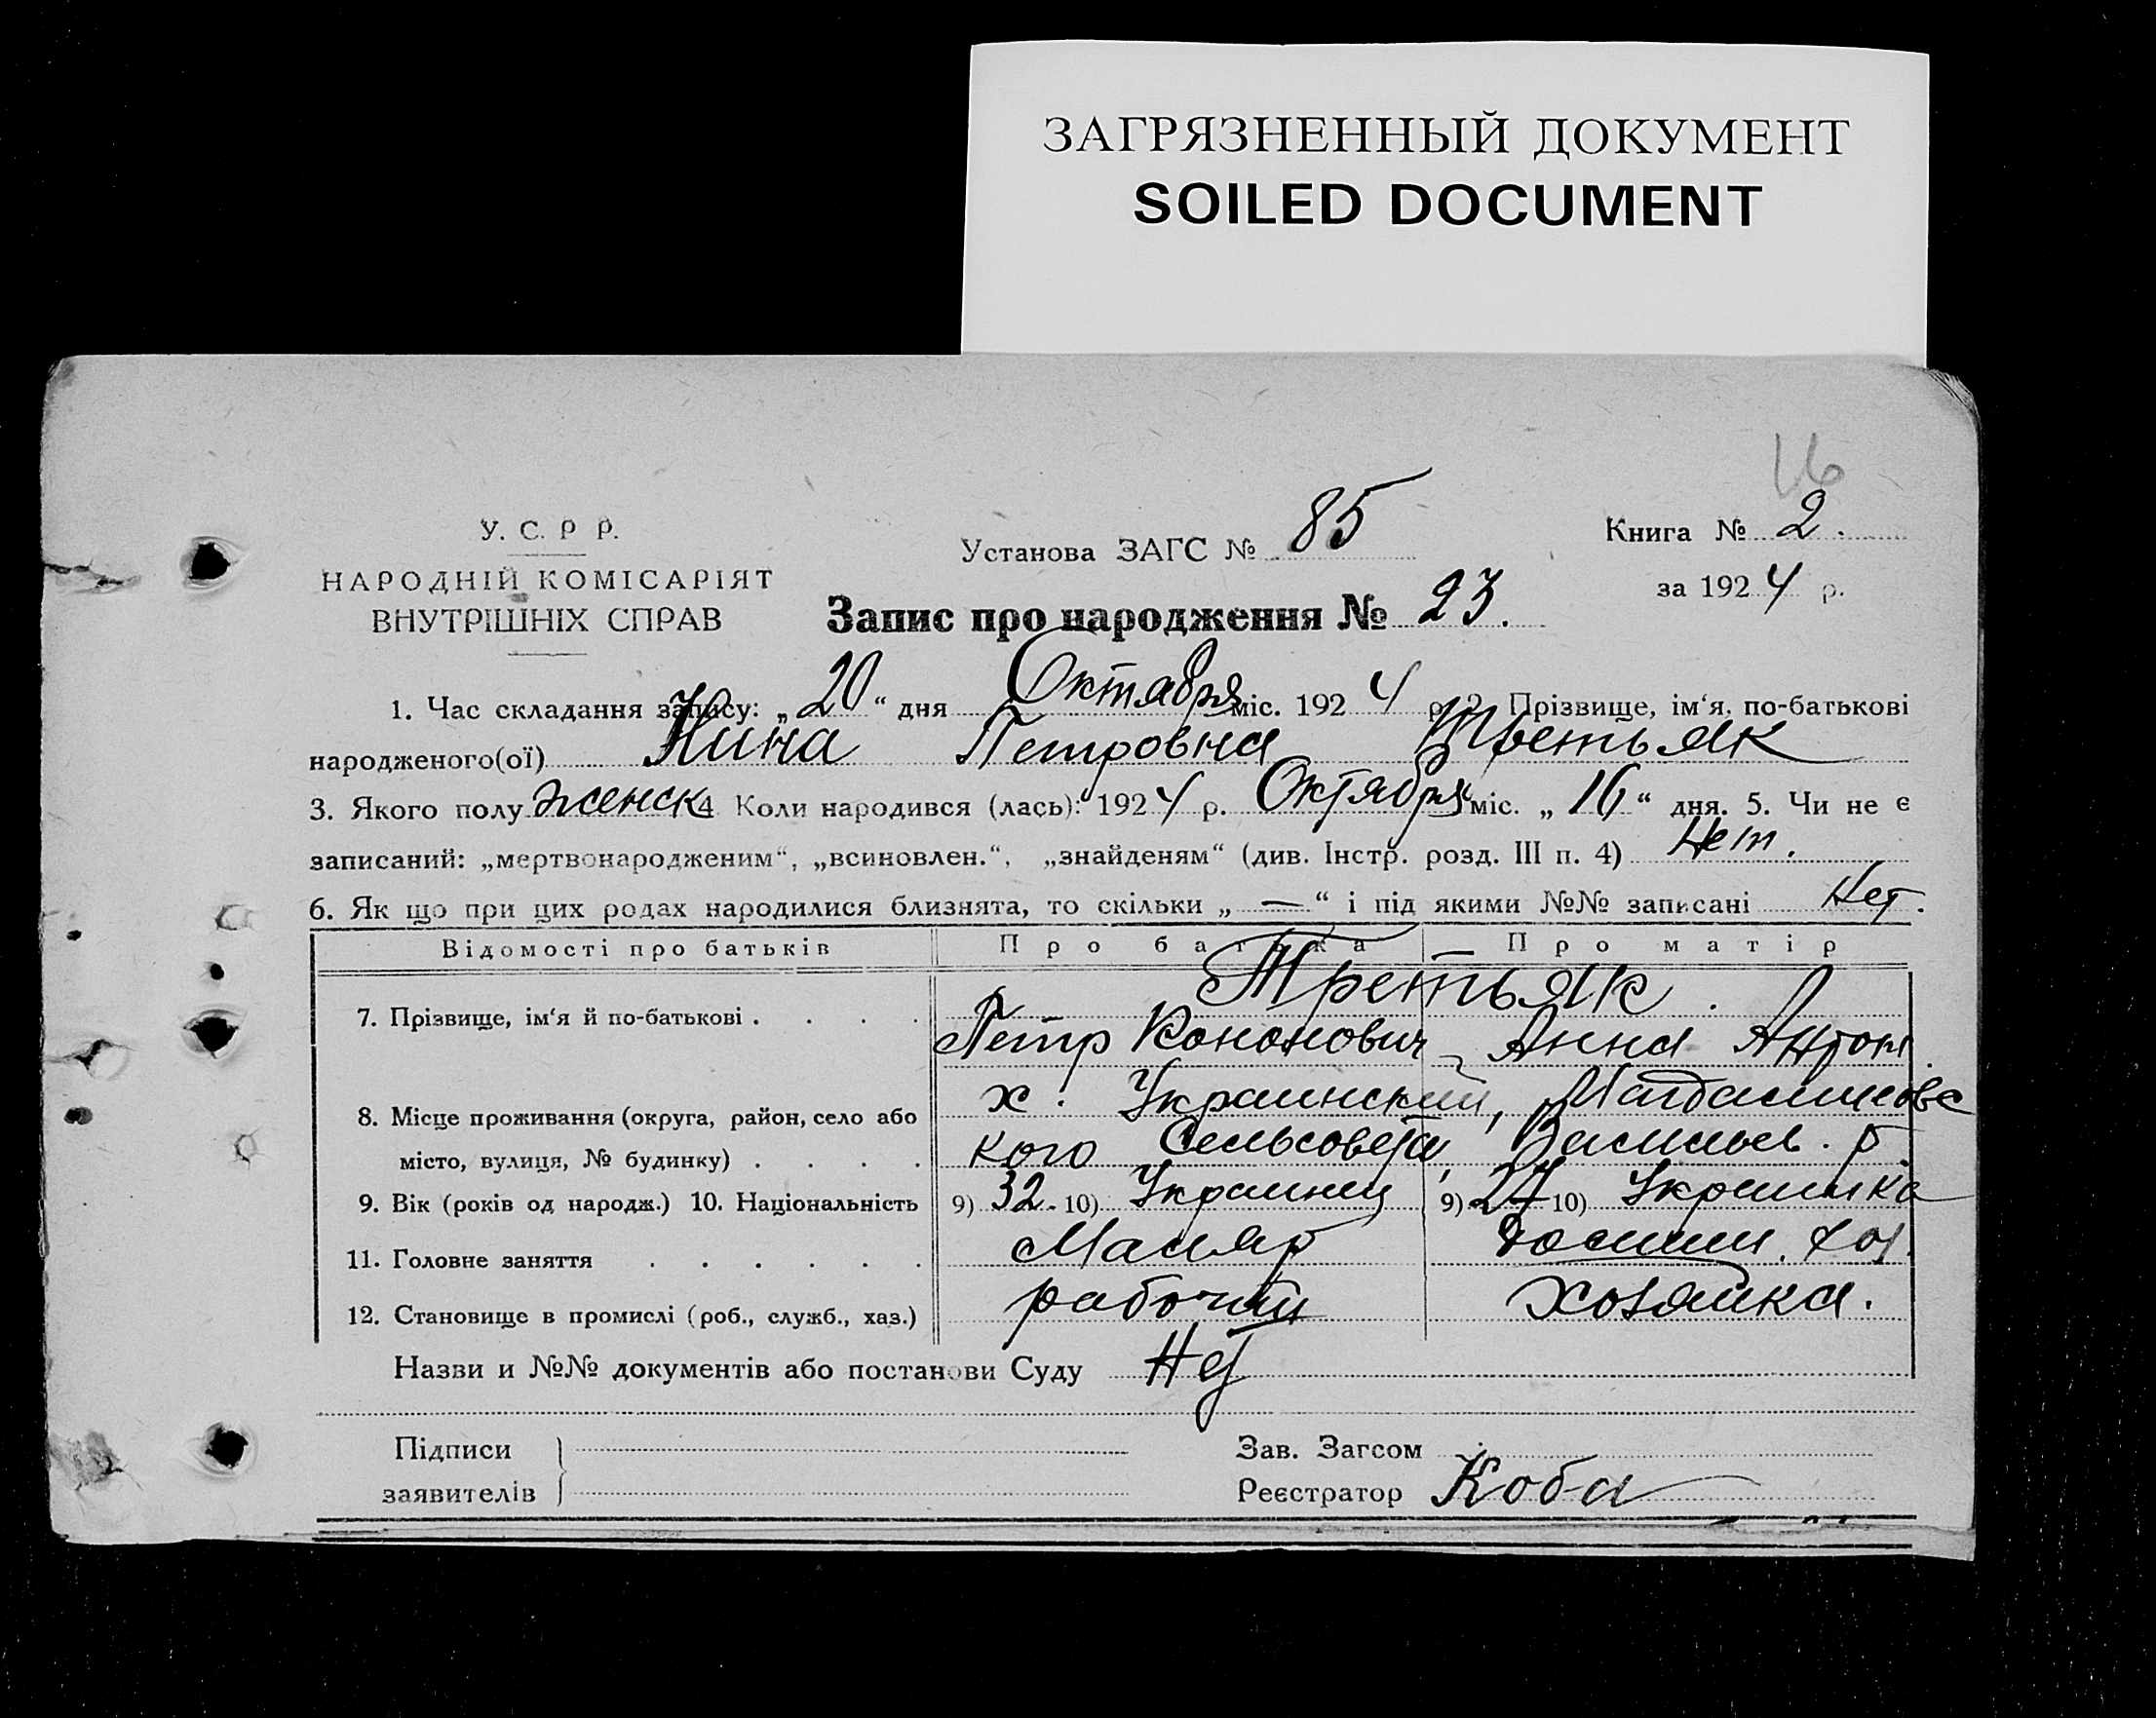 ЗАГРЯЗНЕННЫЙ ДОКУМЕНТ
SOILED DOCUMENT
16
У. С. Р Р.
Установа ЗАГС № 85
Книга № 2.
НАРОДНІЙ КОМІСАРІЯТ
за 1924 р.
ВНУТРІШНІХ СПРАВ
Запис про народження № 23.
1. Час складання запису: „20“ дня Октября міс. 1924 р. 2. Прізвище, ім'я, по-батькові
народженого(ої) Нина Петровна Третьяк
3. Якого полу женск 4 Коли народився (лась): 1924 р. Октября міс. „16“ дня. 5. Чи не є
записаний: „мертвонародженим“, „всиновлен.“, „знайденям“ (див. Інстр. розд. III п. 4) Нет.
6. Як що при цих родах народилися близнята, то скільки „—“ і під якими №№ записані Нет.
Відомості про батьків Про батька Про матір
Третьяк.
7. Прізвище, ім'я й по-батькові . . . .
Петр Кононович Анна Антон.
х. Украинский,
8. Місце проживання (округа, район, село або
місто, вулиця, № будинку) . . . . кого Сельсовета, Васильев. р.
9. Вік (років од народж.) 10. Національність 9) 32. 10) Украинец 9) 27 10) Украинка
11. Головне заняття . . . . . . Маляр домашн. хоз.
12. Становище в промислі (роб., служб., хаз.) рабочий хозяйка.
Назви и №№ документів або постанови Суду Нет
Підписи
заявителів
Зав. Загсом
Реєстратор Коба